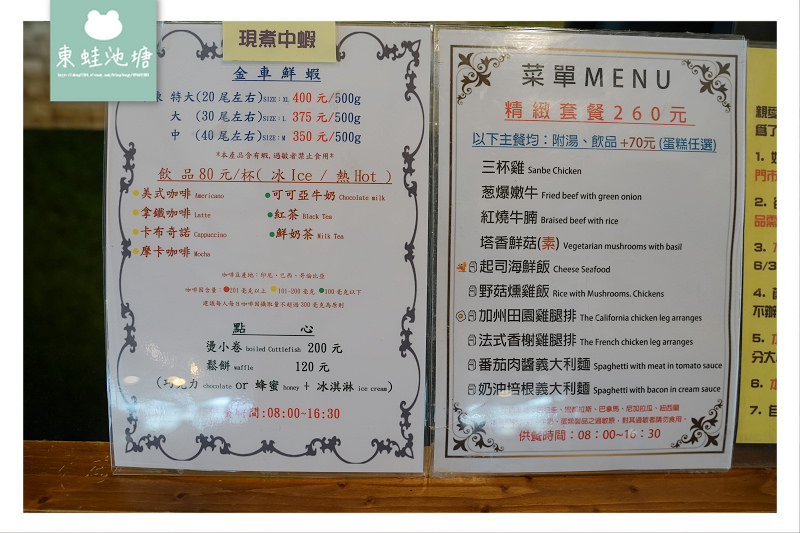 東蛙池塘
現煮中蝦
金車鮮蝦
特大(20 尾左右)SIZE:XL 400 元/500g
大 (30 尾左右)SIZE:L 375 元/500g
中 (40 尾左右)SIZE:M 350 元/500g
*本產品含有蝦,過敏者禁止食用*
飲 品 80 元/杯( 冰 Ice / 熱 Hot )
美式咖啡 Americano
可可亞牛奶 Chocolate milk
拿鐵咖啡 Latte
紅茶 Black Tea
卡布奇諾 Cappuccino
鮮奶茶 Milk Tea
摩卡咖啡 Mocha
咖啡豆產地:印尼、巴西、哥倫比亞
咖啡因含量:●201 毫克以上 ●101-200 毫克 ●100 毫克以下
建議每人每日咖啡因攝取量不超過 300 毫克為原則
點 心
燙小卷 boiled Cuttlefish 200 元
鬆餅 waffle 120 元
(巧克力 chocolate or 蜂蜜 honey + 冰淇淋 ice cream)
時間:08:00~16:30
菜單MENU
精緻套餐260元
以下主餐均：附湯、飲品 +70元 (蛋糕任選)
三杯雞 Sanbe Chicken
蔥爆嫩牛 Fried beef with green onion
紅燒牛腩 Braised beef with rice
塔香鮮菇(素) Vegetarian mushrooms with basil
起司海鮮飯 Cheese Seafood
野菇燻雞飯 Rice with Mushrooms. Chickens
加州田園雞腿排 The California chicken leg arranges
法式香榭雞腿排 The French chicken leg arranges
番茄肉醬義大利麵 Spaghetti with meat in tomato sauce
奶油培根義大利麵 Spaghetti with bacon in cream sauce
宏都拉斯、巴拿馬、尼加拉瓜、紐西蘭
蛋類製品之過敏原，對其過敏者請勿食用。
供餐時間：08：00~16：30
親愛
為了
1.
門市
2.
品需
3.
6/3
4.
不辦
5.
分大
6.
7.